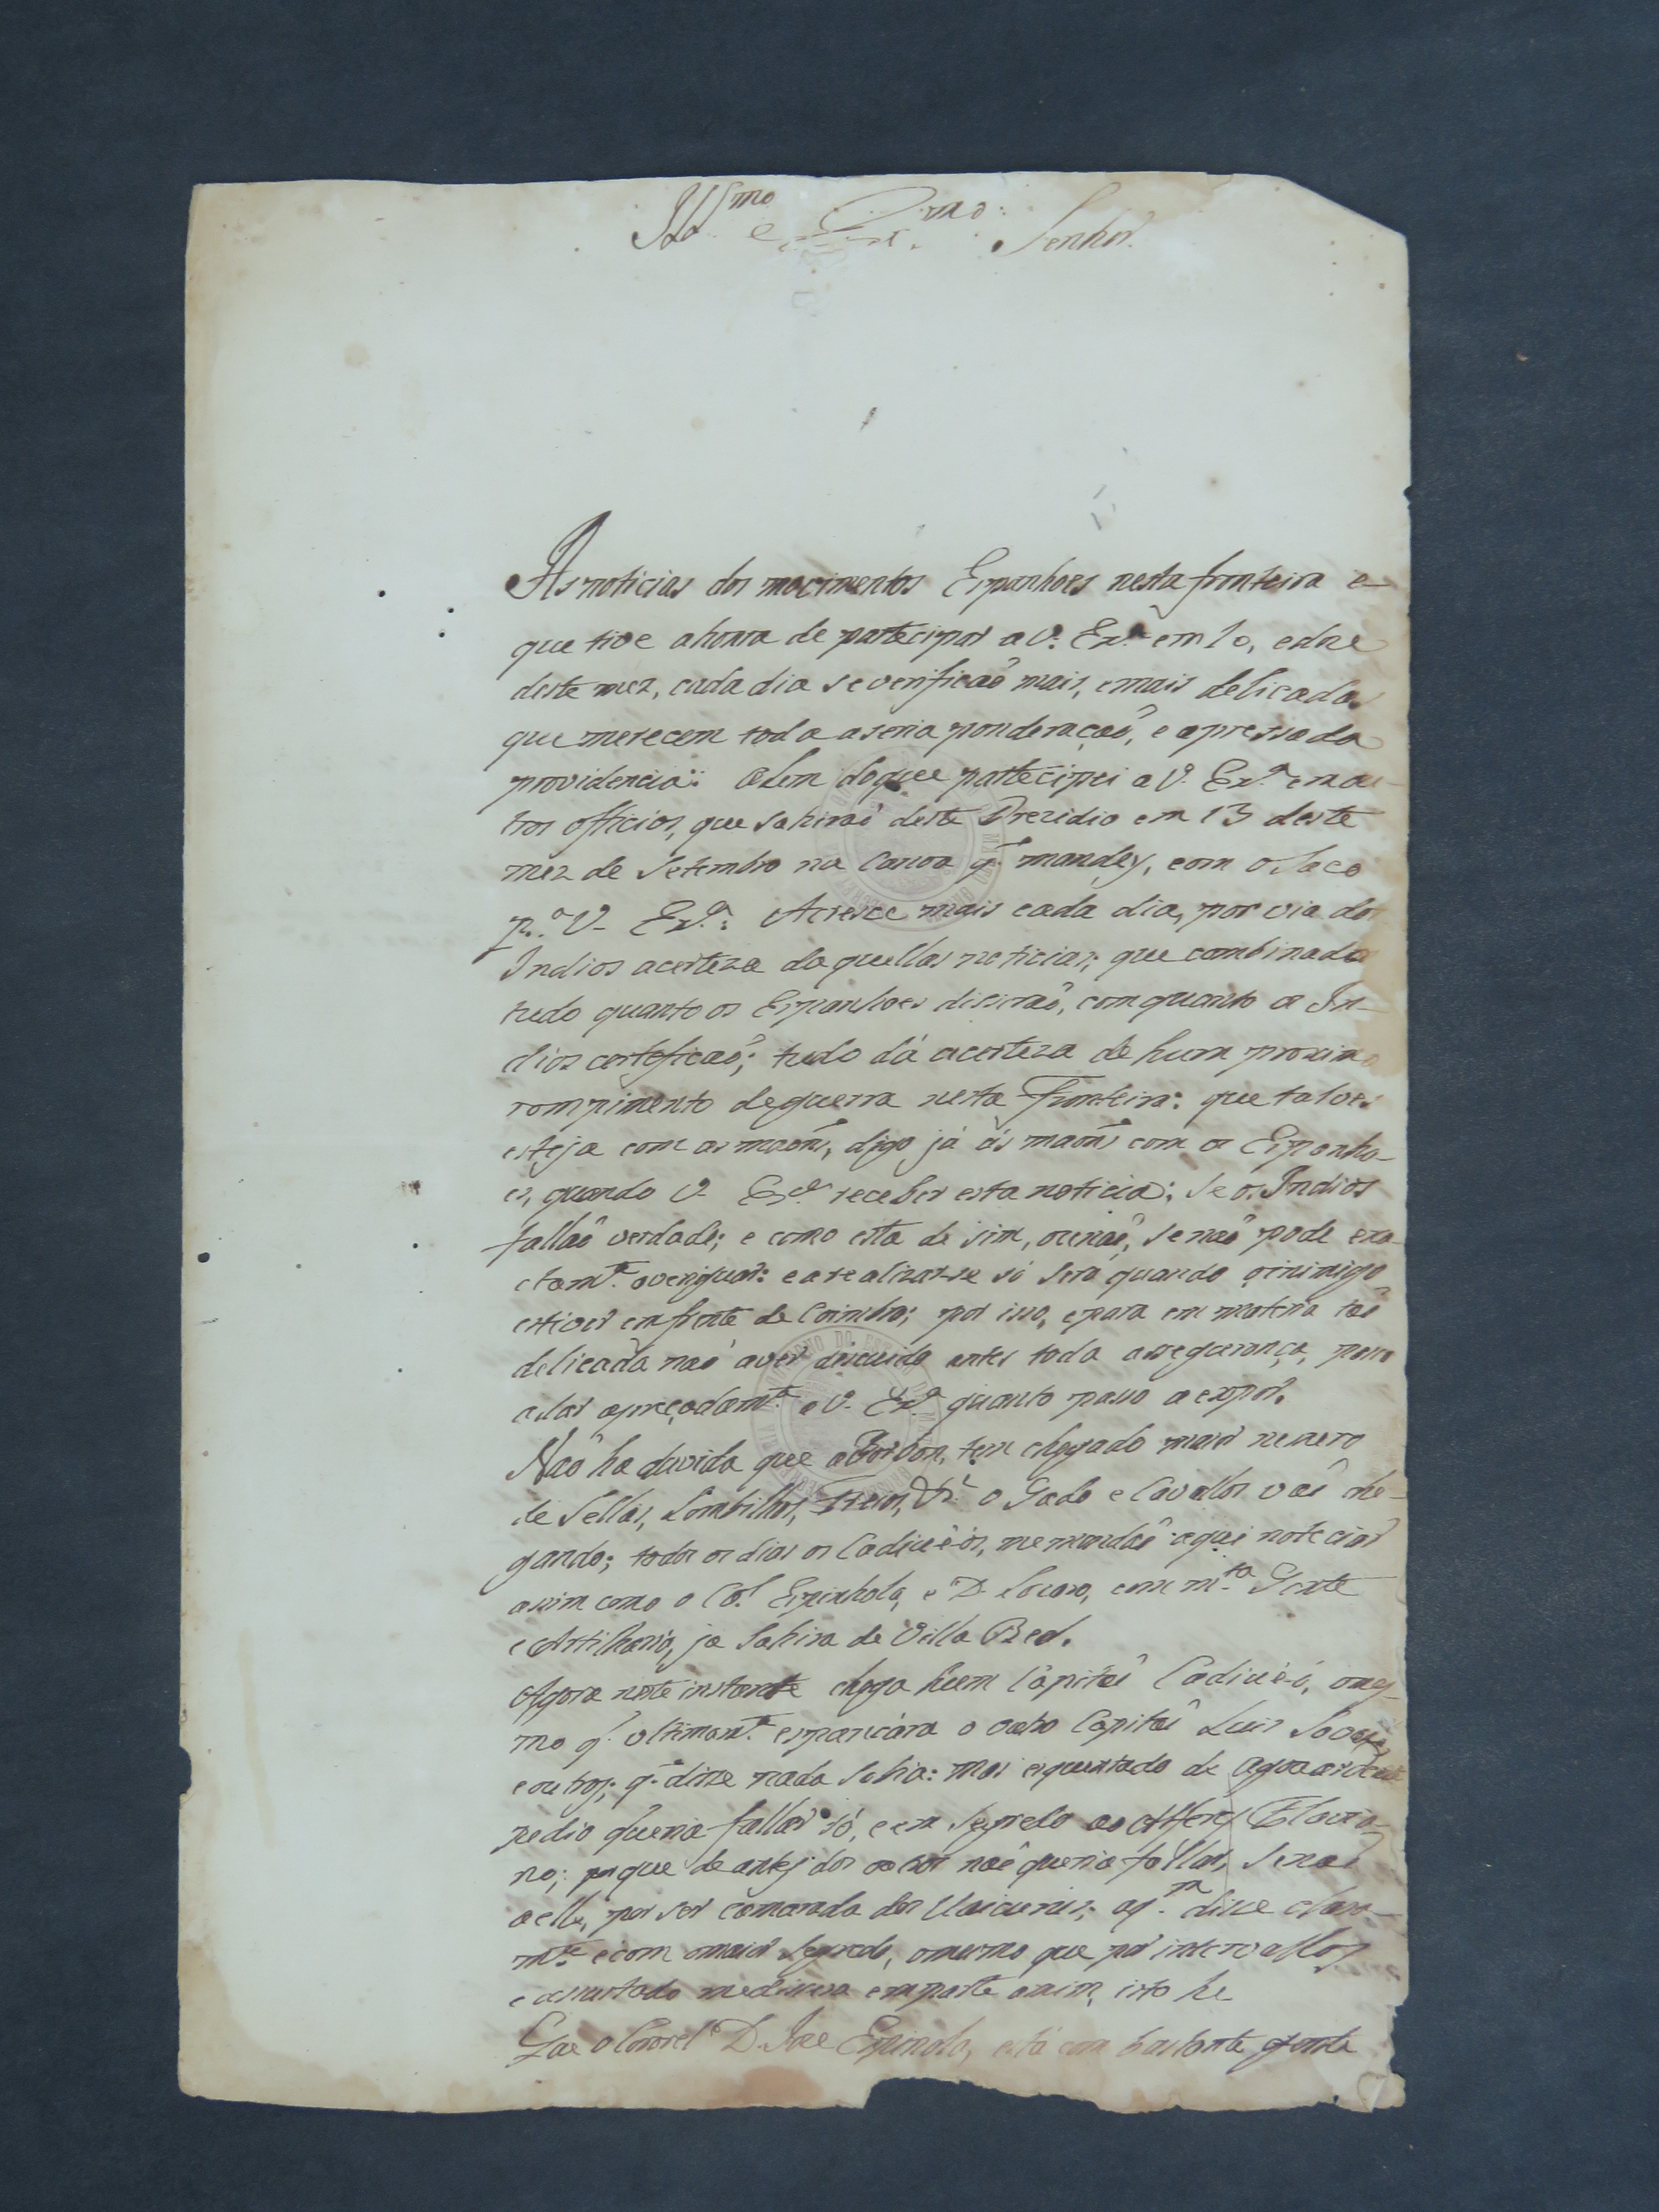 Ill.mo e Ex.mo Senhor
As noticias dos movimentos Espanhoes nesta fronteira e
que tive a honra de partecipar a V. Ex.a em 10, e doze
deste mez, cada dia se verificaõ mais, e mais delicadas
que merecem toda a seria ponderaçaõ, e apressada
providencia: Alem do que partecipei a V. Ex.a em ou-
tros officios, que sahiraõ deste Prezidio em 13 deste
mez de Setembro na Canoa q. mandey, com o Saco
p.a V. Ex.a: Acresce mais cada dia, por via dos
Indios a certeza daquellas noticias; que combinado
tudo quanto os Espanhoes disseraõ, com quanto os In-
dios certeficaõ; tudo dá a certeza de hum proximo
rompimento de guerra nesta Fronteira: que talves
esteja com as maõns, digo já ás maõns com os Espanho-
es, quando V. Ex.a receber esta noticia; se os Indios
fallaõ verdade; e como esta de sim, ou naõ, se naõ pode exa-
ctam.e averiguar: e a realizar-se só será quando o inimigo
estiver em frente de Coimbra; por isso, e para em materia taõ
delicada naõ aver descuido antes toda a segurança, passo
a dar apreçadam.e a V. Ex.a quanto passo a expor.
Naõ ha duvida que a Borbon, tem chegado maior numero
de Sellas, Lombilhos, Freios, &.a o Gado e Cavallos vaõ che-
gando; todos os dias os Cadiuéos, me mandaõ aqui noteciar
assim como o Col. Espinhola, e D. Locoro, com m.ta Gente
e Artilharia, ja sahira de Villa Real.
Agora neste instante chega hum Capitaõ Cadiuéo, o mes-
mo q. ultimam.e espancára o outro Capitaõ Luis
e outros; q. disse nada sabia: mas esquentado de agoa ardente
pedio queria fallar só, e em segredo ao Alferes Floria-
no; porque de antes dos outros naõ queria fallar, senaõ
a elle, por ser camarada dos Uaicurus; aq.m disse clara-
m.te e com o maior segredo, o mesmo que por intervallos,
e assustado me dissera em parte assim, isto he
Que o Coronel D. Jose Espinola, está com bastante gente